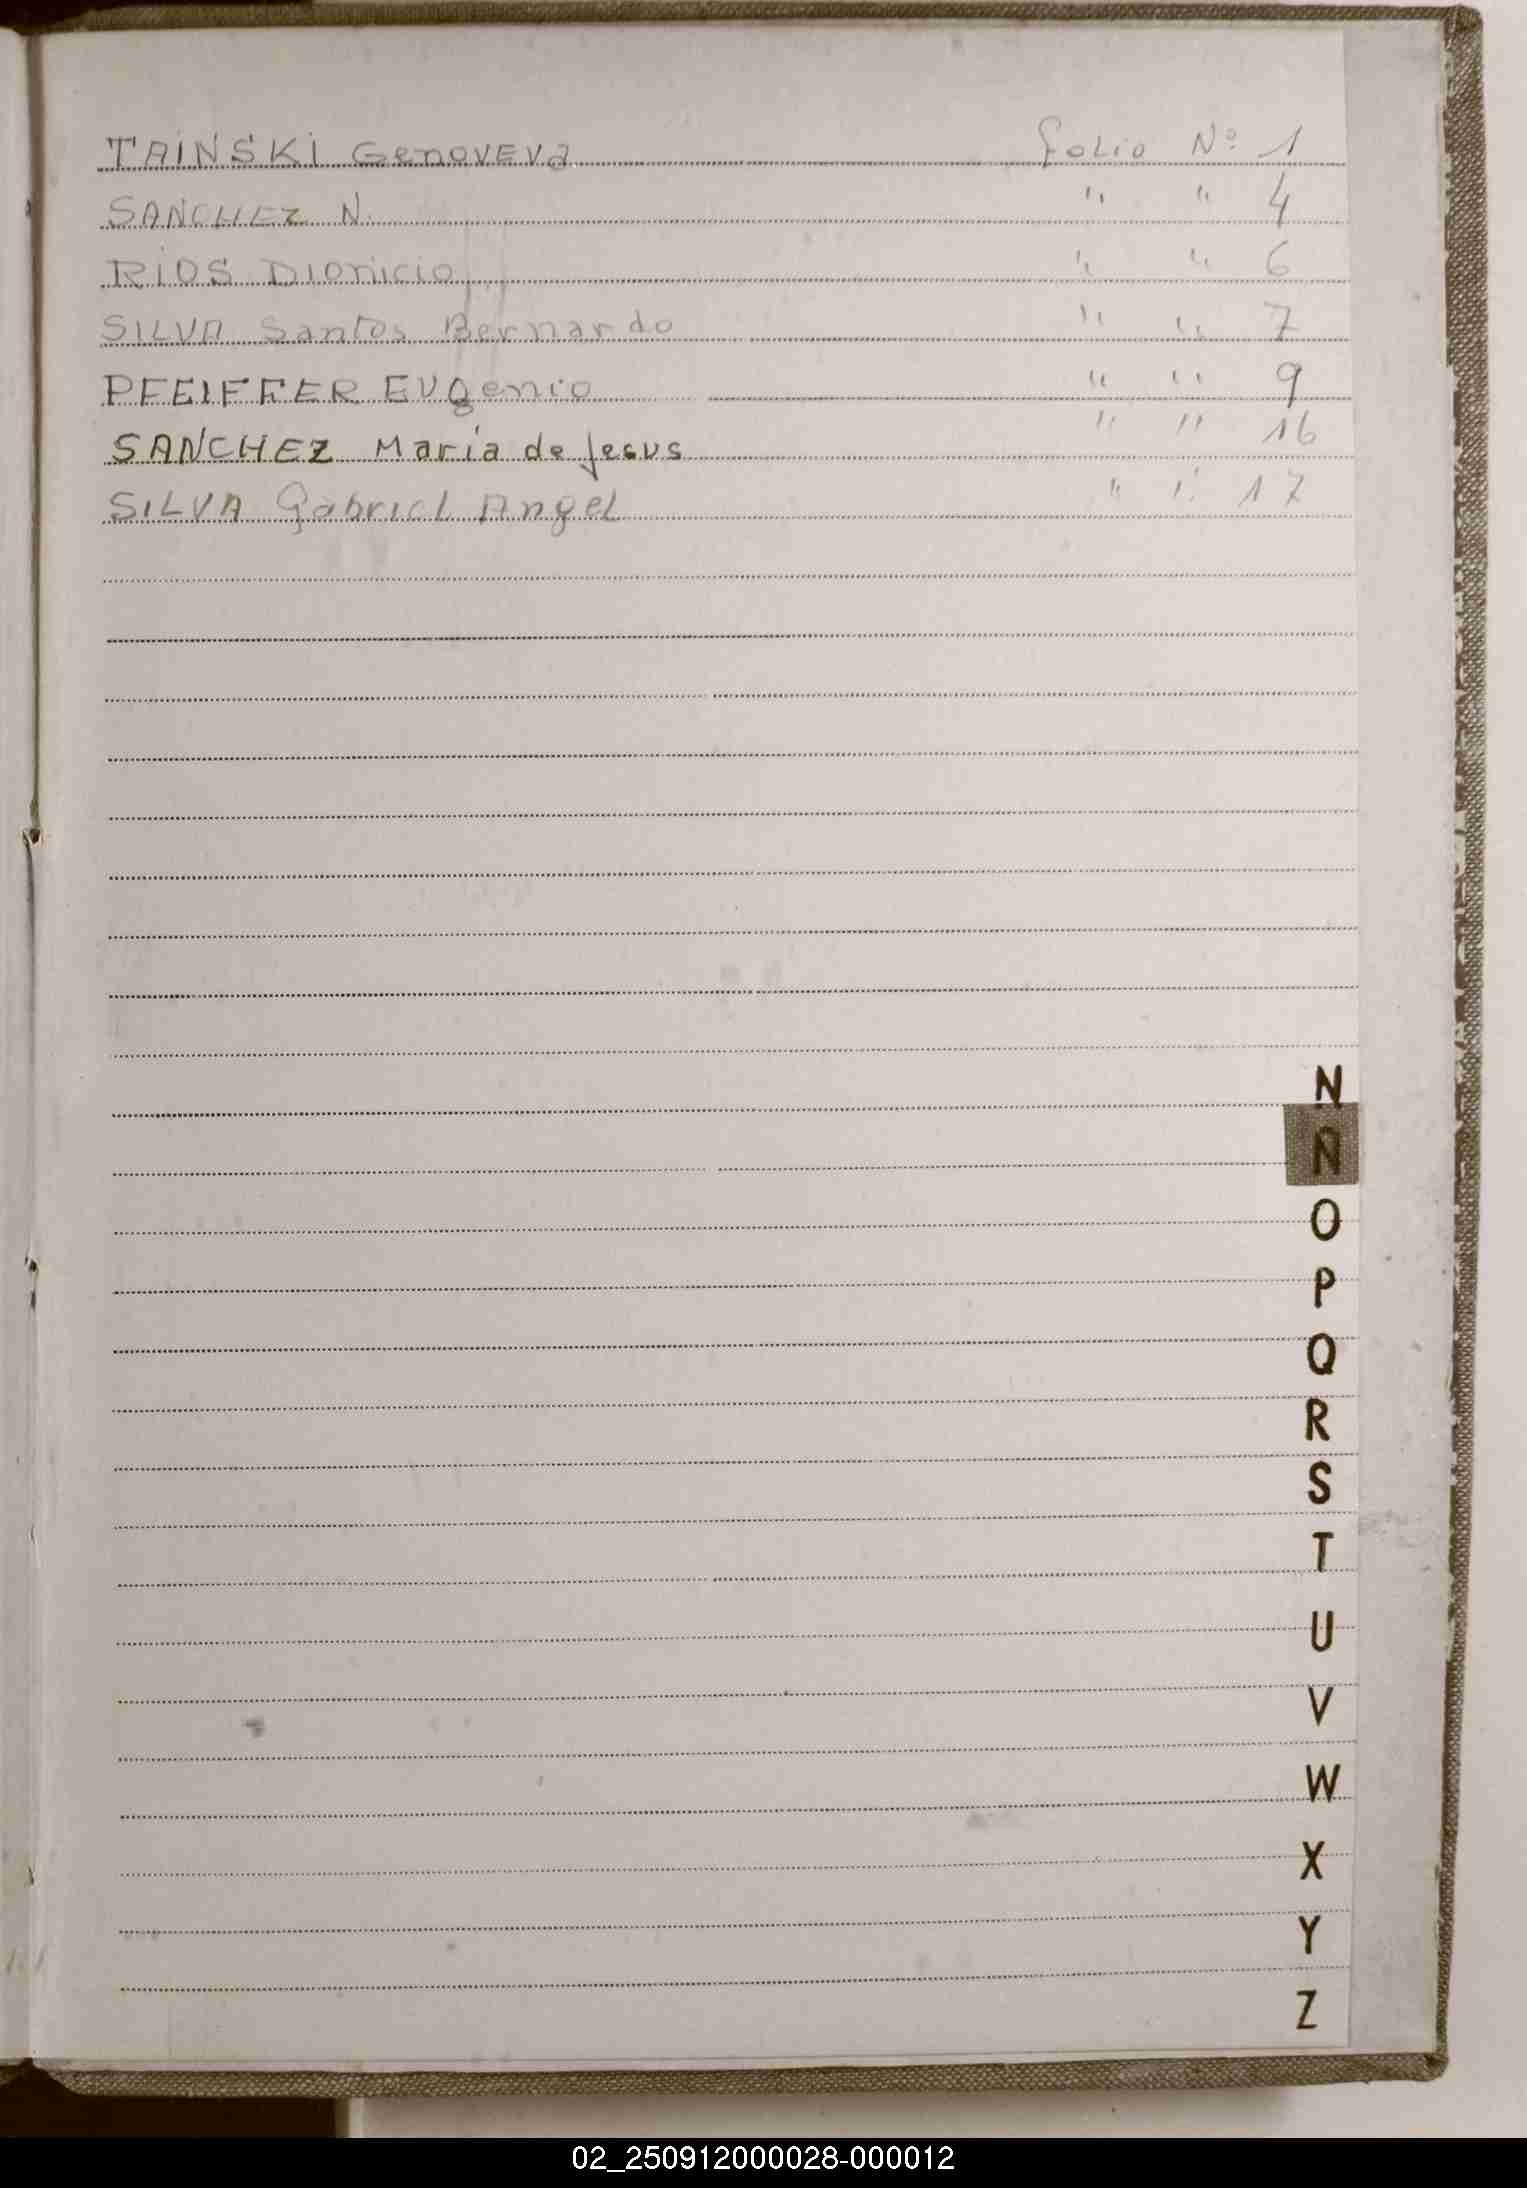 TAINSKI Genoveva Folio Nº 1
SANCHEZ N. " " 4
RIOS Dionicio " " 6
SILVA Santos Bernardo " " 7
PFEIFFER EUgenio " " 9
SANCHEZ Maria de Jesus " " 16
SILVA Gabriel Angel " " 17
N
Ñ
O
P
Q
R
S
T
U
V
W
X
Y
Z
02_250912000028-000012